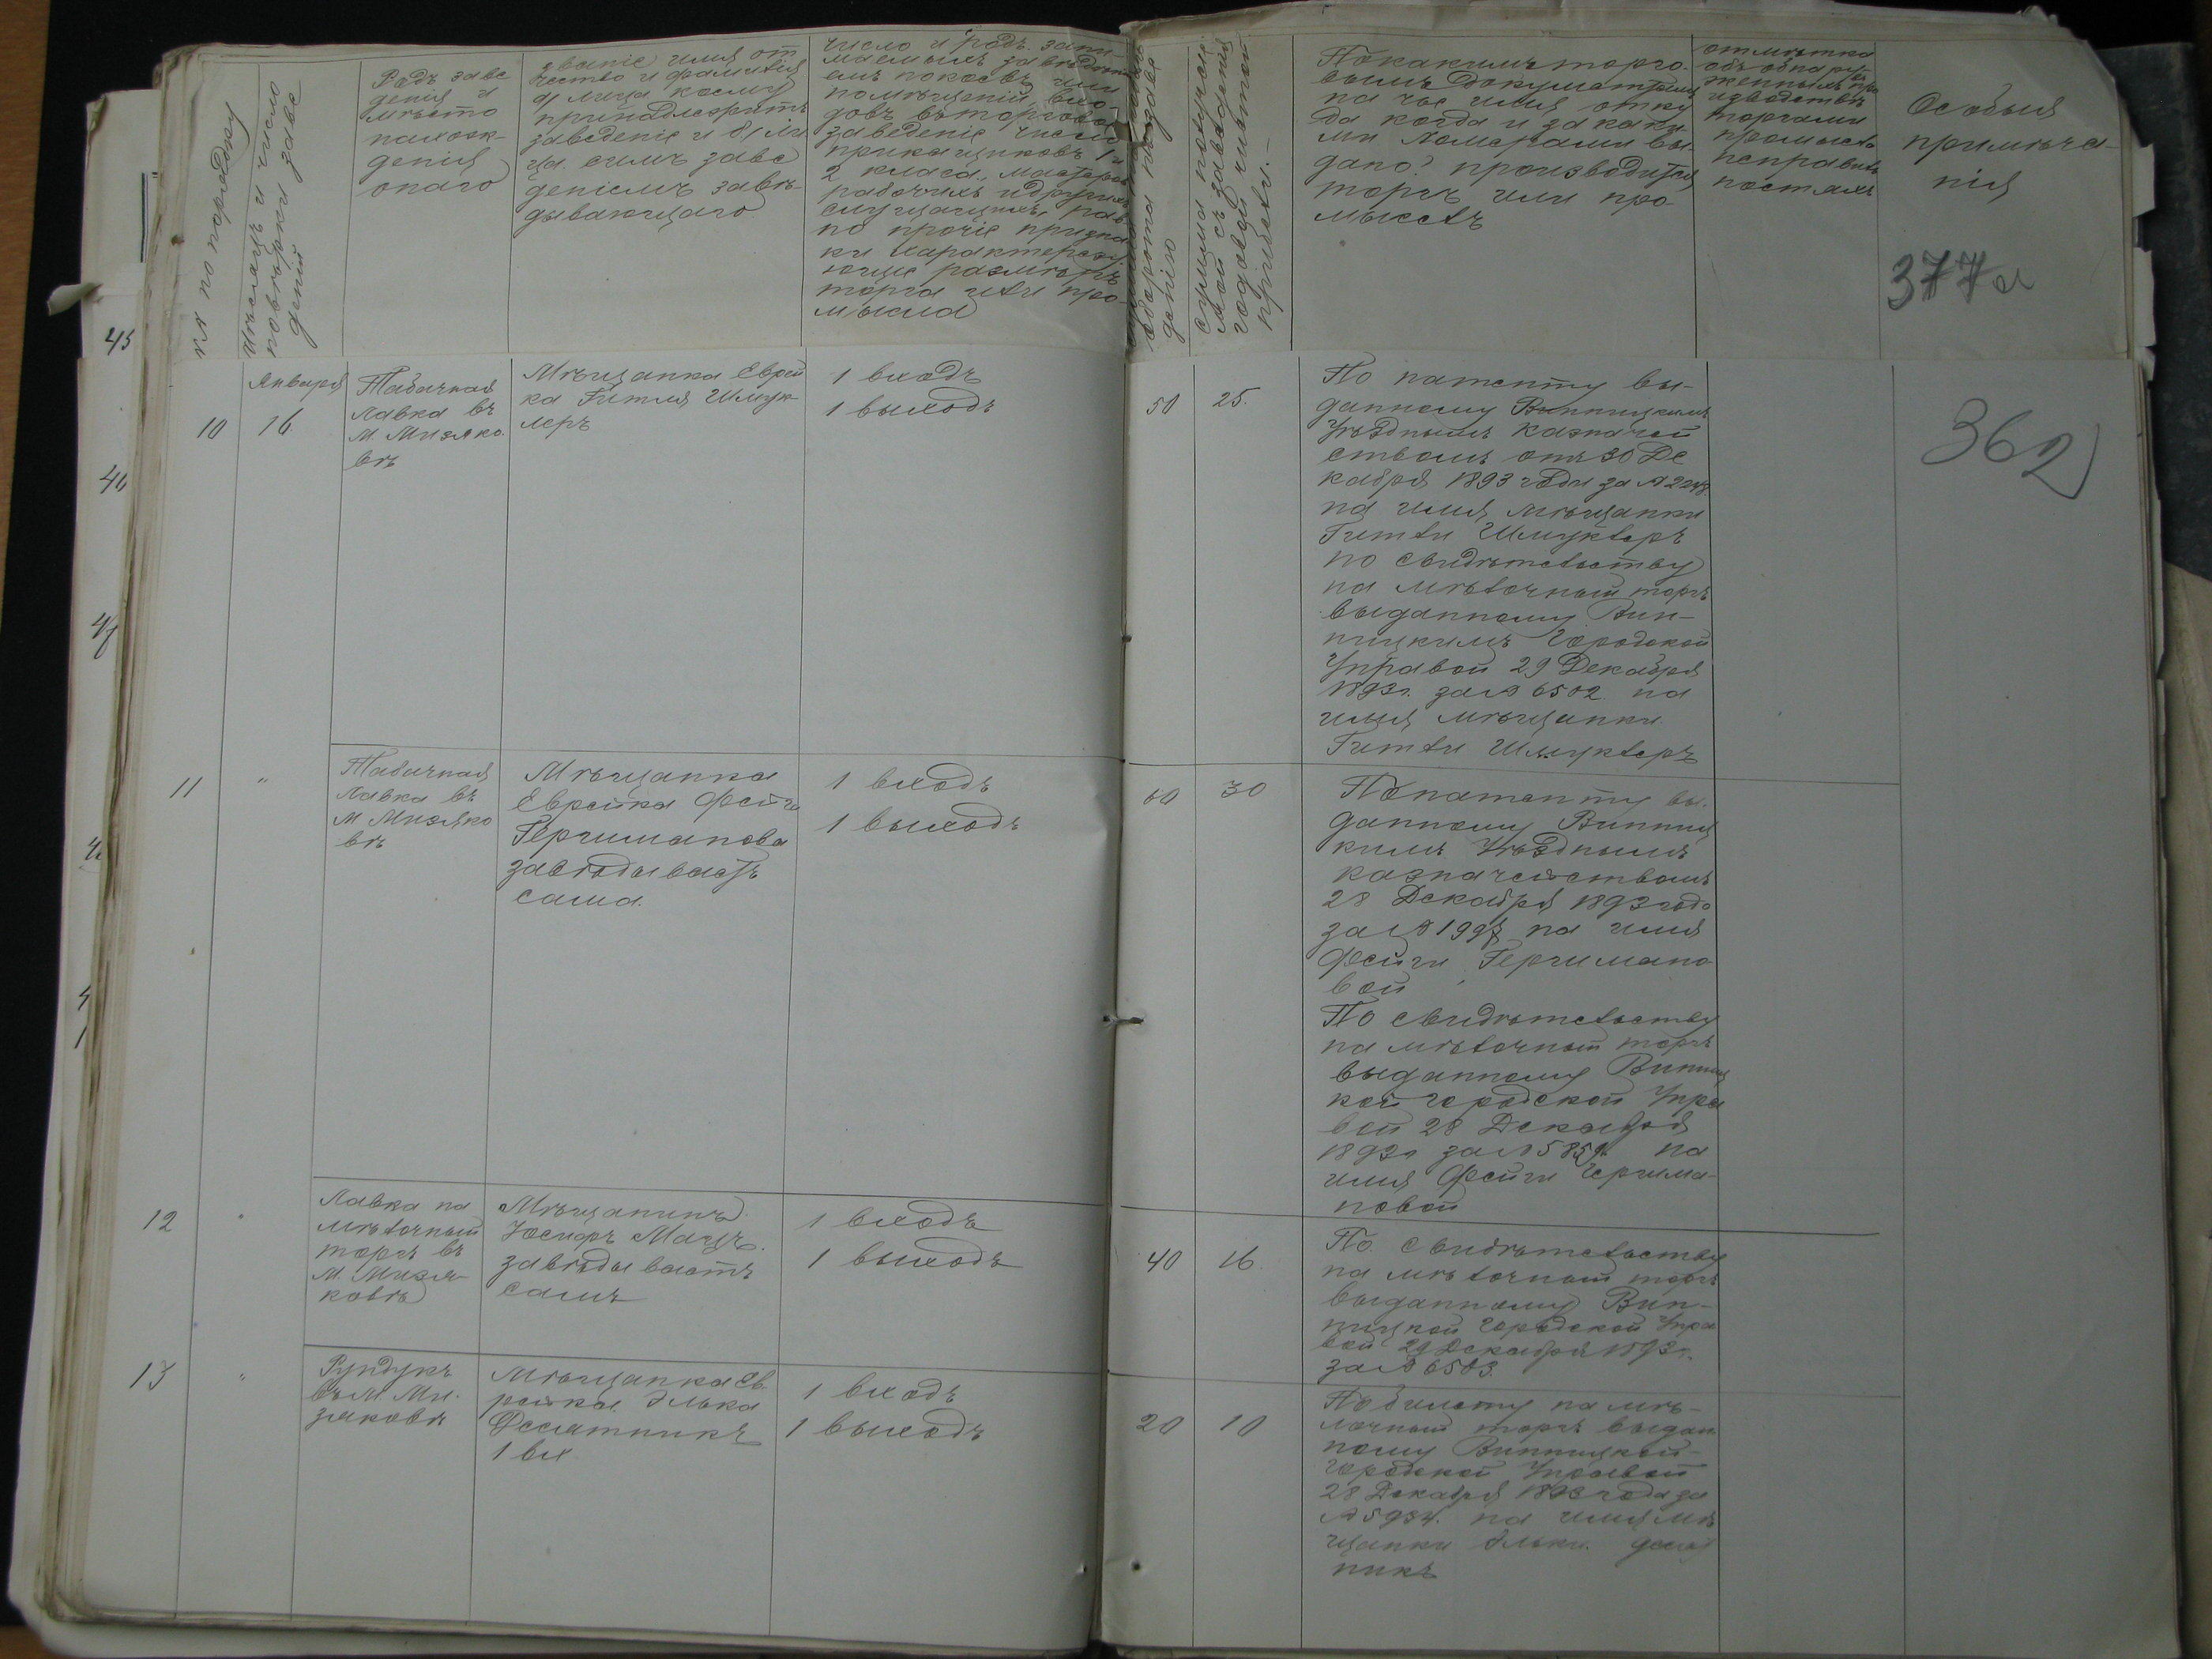 №№ по порядку
Мѣсяцъ и число
повѣрки заве
деній
Родъ заве
денія и
мѣсто
нахож-
денія
онаго
званіе имя от
чество и фамилія
а) лица коему
принадлежитъ
заведеніе и б) ли
ца симъ заве
деніемъ завѣ-
дывающаго
число и родъ зани
маемыхъ заведені
емъ покоевъ или
помѣщеній, вхо-
довъ въ торговое
заведеніе число
прикащиковъ 1 и
2 класа, мастеров
рабочихъ и других
служащихъ, рав
но прочіе призна
ки характеризу
ющіе размѣръ
торга или про-
мысла
оборота по заве
денію
Сумма получае
мой съ заведенія
годовой чистой
прибыли.-
По какимъ торго-
вымъ документамъ
на чье имя отку
да когда и за каки
ми номерами вы
дано? производится
торгъ или про-
мыселъ
отмѣтка
объ обнару
женныхъ при
изводствѣ
торгами
промысл
неправиль
ностяхъ
Особыя
примѣча-
нія
377а
362
45
10
Января
16.
Табачная
лавка въ
М. Мизяко.
вѣ
Мѣщанка Еврей
ка Гитля Шмук-
леръ
1 входъ
1 выходъ
50
25.
По патенту вы-
данному Винницкимъ
Уѣзднымъ казначей
ствомъ отъ 30 Де
кабря 1893 года за №
на имя мѣщанки
Гитли Шмуклеръ
по свидѣтельству
на мѣлочный торгъ
выданному Вин-
ницкимъ Городской
Управой 29 Декабря
1893г. за № 6502. на
имя мѣщанки
Гитли Шмуклеръ
11
"
Табачная
лавка въ
М Мизяко
вѣ
Мѣщанка
Еврейка Фейга
Герчиманова
завѣдываетъ
сама.
1 входъ
1 выходъ
60
30
По патенту вы.
данному Винниц
кимъ Уѣзднымъ
казначействомъ
28 Декабря 1893 года
за № на имя
Фейги Герчимано
вой
По свидѣтельству
на мѣлочный торгъ
выданному Винниц
кой городской Упра
вой 28 Декабря
1893г за № 5859. на
имя Фейги Герчима-
новой
12
"
Лавка на
мѣлочный
торгъ въ
М. Мизя-
ковѣ
Мѣщанинъ
Юсифъ Мацъ.
завѣдываетъ
самъ
1 входъ
1 выходъ
40
16.
По свидѣтельству
на мѣлочный торгъ
выданному Вин-
ницкой Городской Упра
вой 29 Декабря 1893г.
за № 6503.
13
"
Рундукъ
въ М. Ми.
зяковѣ
Мѣщанка Ев
рейка Элька
Десятникъ
1 вх
1 входъ
1 выходъ
20
10
По билету на мѣ-
лочный торгъ выдан
ному Винницкой-
Городской Управой
28 Декабря 1893 года за
№ 5934. на имя мѣ
щанки Эльки Десят
никъ